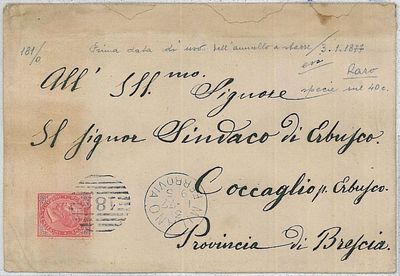 181/0
Prima data di uso dell'annullo a sbarre / 3.1.1877
Raro
specie sul 40c.
All' Ill.mo.
Signore
Il Signor Sindaco di Erbusco.
Coccaglio p. Erbusco.
Provincia di Brescia.
18
FERROVIA